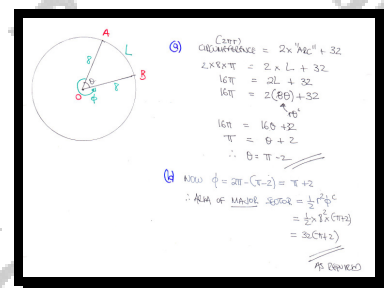 A
L
8
θ
B
O
8
φ
(a) (2πr)
CIRCUMFERENCE = 2 x "ARC" + 32
2×8×π = 2 × L + 32
16π = 2L + 32
16π = 2(8θ) + 32
rθᶜ
16π = 16θ + 32
π = θ + 2
∴ θ = π - 2
(b) NOW φ = 2π - (π - 2) = π + 2
∴ AREA OF MAJOR SECTOR = ½ r² φᶜ
= ½ × 8² × (π+2)
= 32(π+2)
AS REQUIRED